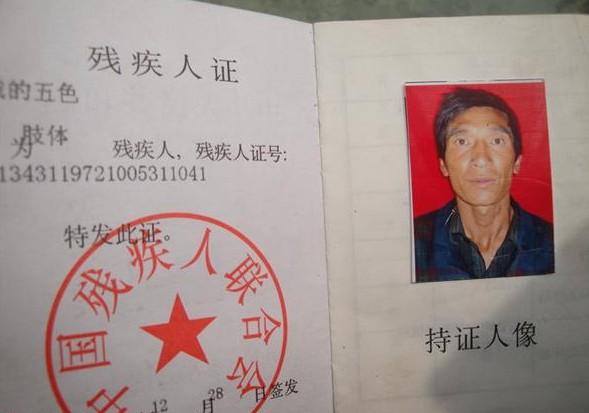 残疾人证
的五色
为 肢体 残疾人，残疾人证号：
13431119721005311041
特发此证。
中国残疾人联合会
12月28日签发
持证人像